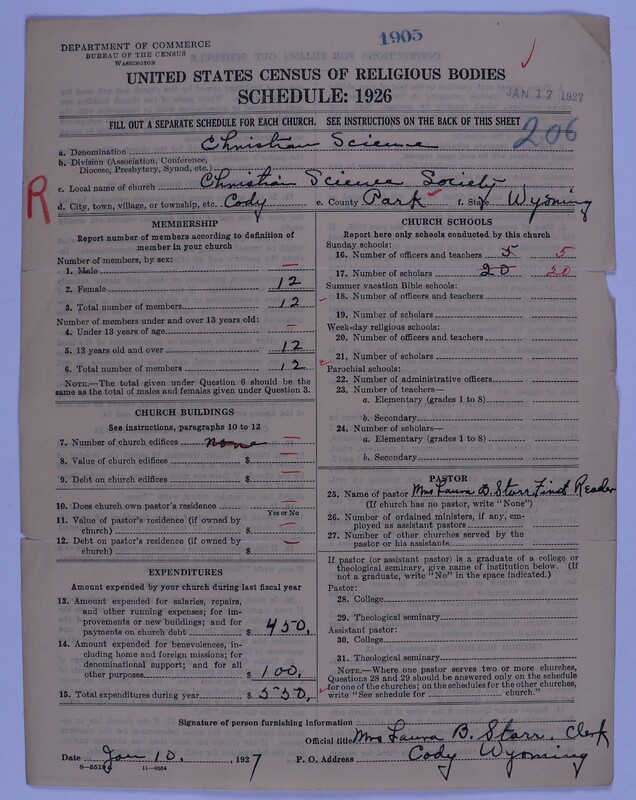 1905
DEPARTMENT OF COMMERCE
BUREAU OF THE CENSUS
WASHINGTON
UNITED STATES CENSUS OF RELIGIOUS BODIES
SCHEDULE: 1926
JAN 17 1927
FILL OUT A SEPARATE SCHEDULE FOR EACH CHURCH. SEE INSTRUCTIONS ON THE BACK OF THIS SHEET
206
a. Denomination Christian Science
b. Division (Association, Conference, Diocese, Presbytery, Synod, etc.)
c. Local name of church Christian Science Society
R
d. City, town, village, or township, etc. Cody e. County Park f. State Wyoming
MEMBERSHIP
Report number of members according to definition of
member in your church
Number of members, by sex:
1. Male —
2. Female 12
3. Total number of members 12
Number of members under and over 13 years old:
4. Under 13 years of age —
5. 13 years old and over 12
6. Total number of members 12
NOTE.—The total given under Question 6 should be the
same as the total of males and females given under Question 3.
CHURCH BUILDINGS
See instructions, paragraphs 10 to 12
7. Number of church edifices none —
8. Value of church edifices $ —
9. Debt on church edifices $ —
10. Does church own pastor's residence —
Yes or No
11. Value of pastor's residence (if owned by
church) $ —
12. Debt on pastor's residence (if owned by
church) $ —
EXPENDITURES
Amount expended by your church during last fiscal year
13. Amount expended for salaries, repairs,
and other running expenses; for im-
provements or new buildings; and for
payments on church debt $ 450.
14. Amount expended for benevolences, in-
cluding home and foreign missions; for
denominational support; and for all
other purposes $ 100.
15. Total expenditures during year $ 550.
CHURCH SCHOOLS
Report here only schools conducted by this church
Sunday schools:
16. Number of officers and teachers 5 5
17. Number of scholars 20 20
Summer vacation Bible schools:
18. Number of officers and teachers
19. Number of scholars
Week-day religious schools:
20. Number of officers and teachers
21. Number of scholars
Parochial schools:
22. Number of administrative officers
23. Number of teachers—
a. Elementary (grades 1 to 8)
b. Secondary
24. Number of scholars—
a. Elementary (grades 1 to 8)
b. Secondary
PASTOR
25. Name of pastor Mrs Laura B. Starr First Reader
(If church has no pastor, write "None")
26. Number of ordained ministers, if any, em-
ployed as assistant pastors
27. Number of other churches served by the
pastor or his assistants
If pastor (or assistant pastor) is a graduate of a college or
theological seminary, give name of institution below. (If
not a graduate, write "No" in the space indicated.)
Pastor:
28. College
29. Theological seminary
Assistant pastor:
30. College
31. Theological seminary
NOTE.—Where one pastor serves two or more churches,
Questions 28 and 29 should be answered only on the schedule
for one of the churches; on the schedules for the other churches,
write "See schedule for church."
Signature of person furnishing information
Official title Mrs Laura B. Starr, Clerk
Date Jan 10. , 1927 P. O. Address Cody Wyoming
11—9554